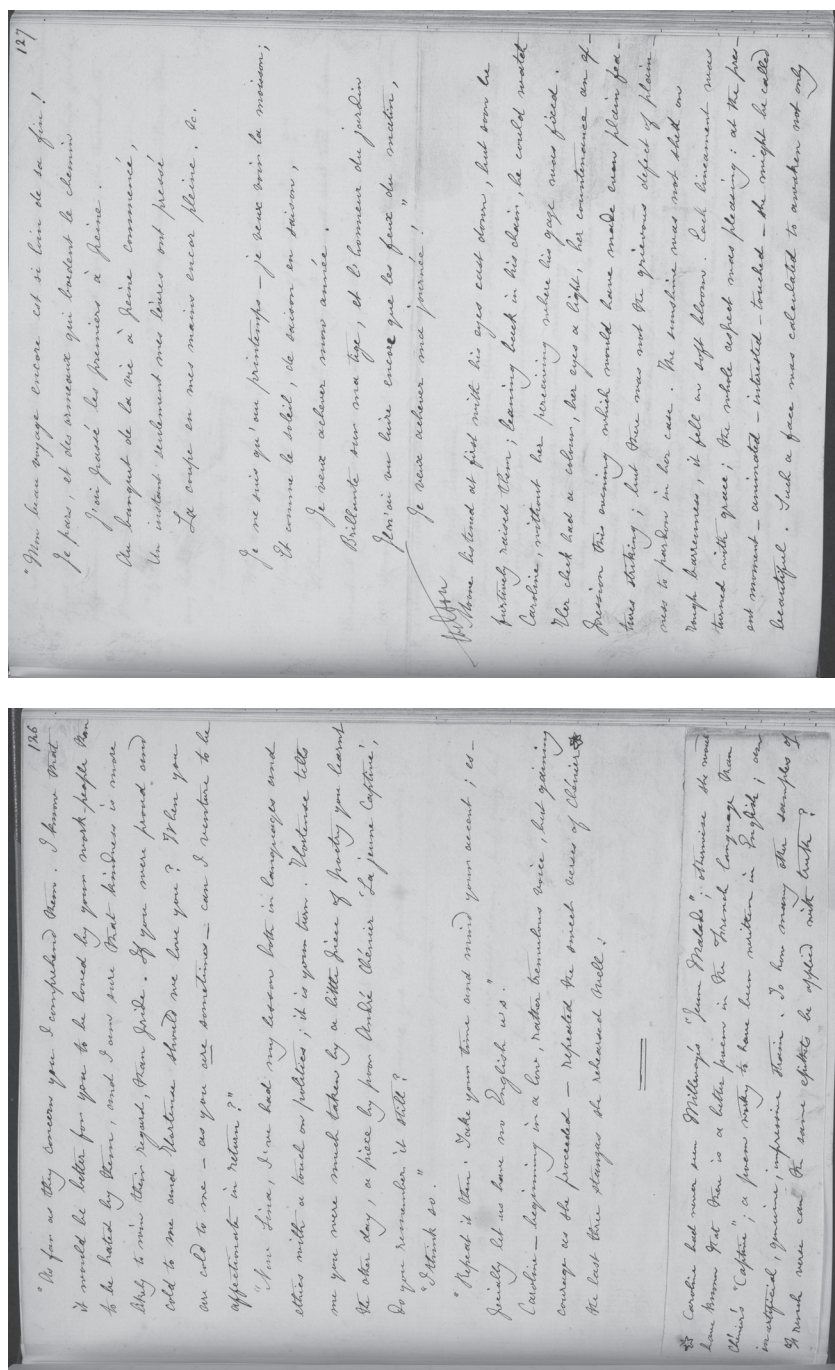 126
"As far as they concern you I comprehend them. I know that
it would be better for you to be loved by your work-people than
to be hated by them, and I am sure that kindness is more
likely to win their regard, than pride. If you were proud and
cold to me and Hortense should we love you? When you
are cold to me – as you are sometimes – can I venture to be
affectionate in return?"
"Now Lina, I've had my lesson both in languages and
ethics with a touch on politics; it is your turn. Hortense tells
me you were much taken by a little piece of poetry you learnt
the other day, a piece by poor André Chénier 'La jeune Captive',
do you remember it still?
"I think so."
"Repeat it then. Take your time and mind your accent; es-
pecially let us have no English u's."
Caroline – beginning in a low, rather tremulous voice, but gaining
courage as she proceeded – repeated the sweet verses of Chénier*
the last three stanzas she rehearsed well:
* Caroline had never seen Millevoye's "Jeune Malade"; otherwise she would
have known that there is a better poem in the French language than
Chénier's "Captive"; a poem worthy to have been written in English; an
inartificial, genuine, impressive strain. To how many other samples of
French verse can the same epithets be applied with truth?
127
"Mon beau voyage encore est si loin de sa fin!
Je pars, et des ormeaux qui bordent le chemin
J'ai passé les premiers à peine.
Au banquet de la vie à peine commencé,
Un instant seulement mes lèvres ont pressé
La coupe en mes mains encor pleine. &c.
Je ne suis qu'au printemps – je veux voir la moisson;
Et comme le soleil, de saison en saison,
Je veux achever mon année.
Brillante sur ma tige, et l'honneur du jardin
Je n'ai vu luire encore que les feux du matin,
Je veux achever ma journée!"
Moore listened at first with his eyes cast down, but soon he
furtively raised them; leaning back in his chair, he could watch
Caroline, without her perceiving where his gaze was fixed.
Her cheek had a colour, her eyes a light, her countenance an ex-
pression this evening which would have made even plain fea-
tures striking; but there was not the grievous defect of plain-
ness to pardon in her case. The sunshine was not shed on
rough barrenness, it fell on soft bloom. Each lineament was
turned with grace; the whole aspect was pleasing: at the pres-
ent moment – animated – interested – touched – she might be called
beautiful. Such a face was calculated to awaken not only